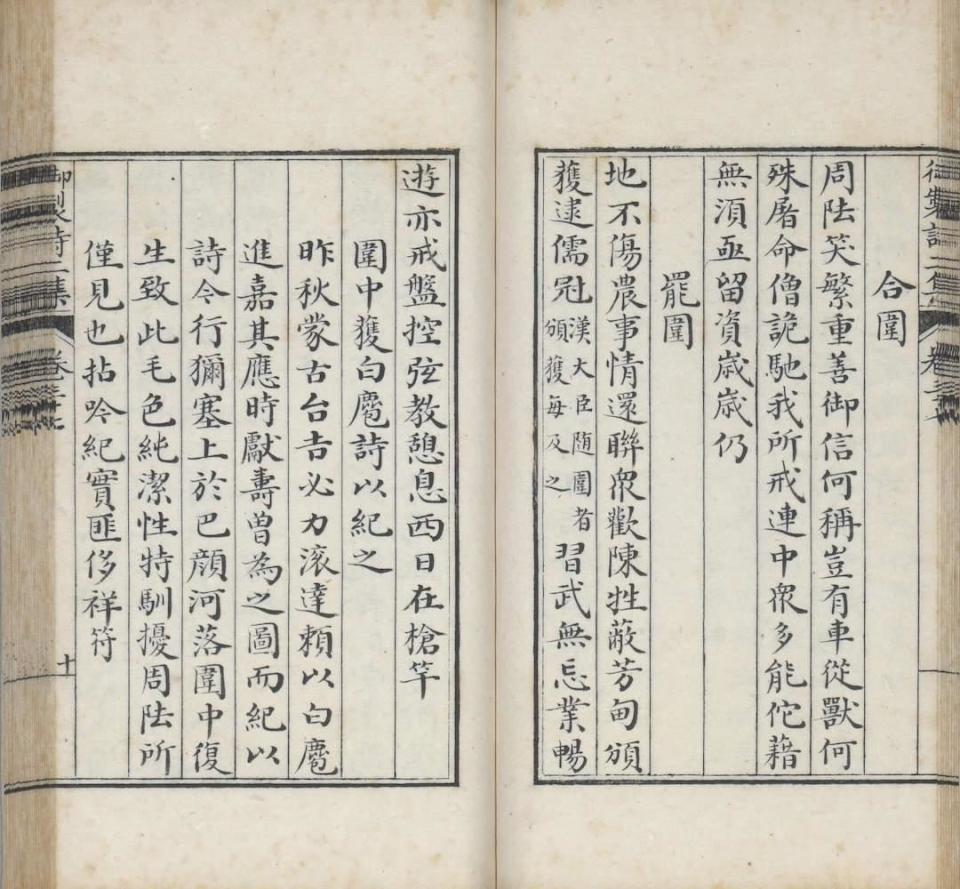 合圍
周阹笑繁重善御信何稱豈有車從獸何
殊屠命僧詭馳我所戒連中衆多能佗藉
無湏亟留資歲歲仍
罷圍
地不傷農事情還聯衆歡陳牲蔽芳甸頒
獲逮儒冠漢大臣随圍者頒獲每及之習武無忘業暢
遊亦戒盤控弦教憩息西日在槍竿
圍中獲白麅詩以紀之
昨秋蒙古台吉必力滚達頼以白麅
進嘉其應時獻壽曽為之圖而紀以
詩今行獮塞上於巴顔河落圍中復
生致此毛色純潔性特馴擾周阹所
僅見也拈吟紀實匪侈祥符
御製詩二集
卷三十七
十